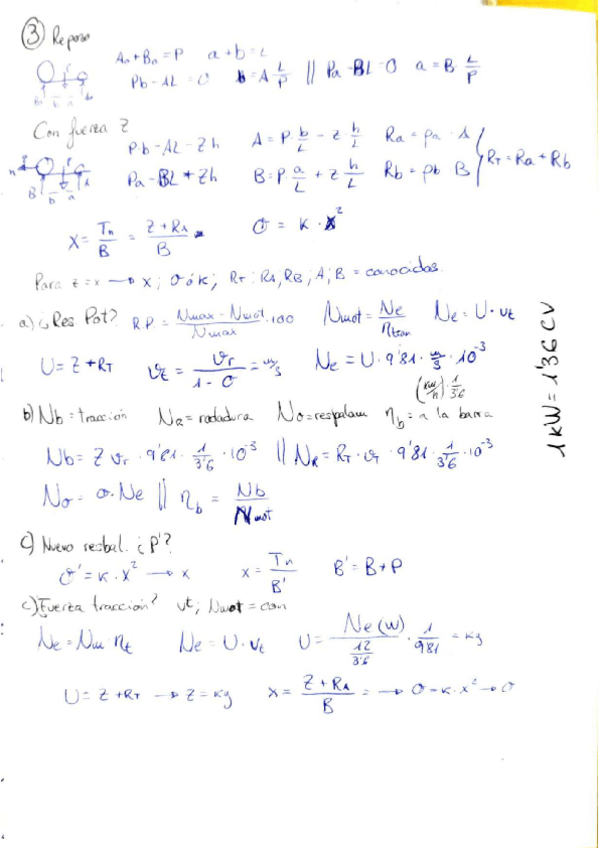 ③ Reposo
Ao + Bo = P   a + b = L
Pb - AL = 0   b = A L/P // Pa - BL = 0   a = B L/P
Con fuerza Z
Pb - AL - Zh   A = P b/L - z h/L   Ra = ρa · A
Pa - BL + Zh   B = P a/L + z h/L   Rb = ρb B   RT = Ra + Rb
X = Tn/B = Z + RA/B   σ = K · X²
Para z = x → x ; σ ó k ; RT ; RA, RB ; A ; B = conocidas.
a) ¿Res Pot? R.P. = Nmax - Nmot/Nmax · 100   Nmot = Ne/ηtran   Ne = U · vt
U = Z + RT   vt = vr/1 - σ = m/s   Ne = U · 9'81 · m/s · 10⁻³
(km/h) · 1/3'6
b) Nb = tracción   NR = rodadura   Nσ = resbalam   ηb = a la barra
Nb = Z vr · 9'81 · 1/3'6 · 10⁻³ // NR = RT · vT · 9'81 · 1/3'6 · 10⁻³
Nσ = σ · Ne // ηb = Nb/Nmot
C) Nuevo resbal. ¿P'?
σ' = K · X² → x   x = Tn/B'   B' = B + P
c) ¿Fuerza tracción? vt ; Nmot = con
Ne = Nm · ηt   Ne = U · vt   U = Ne (W)/12/3'6 · 1/9'81 = kg
U = Z + RT → Z = kg   X = Z + RA/B = → σ = K · X² → σ
1 kW = 1'36 CV